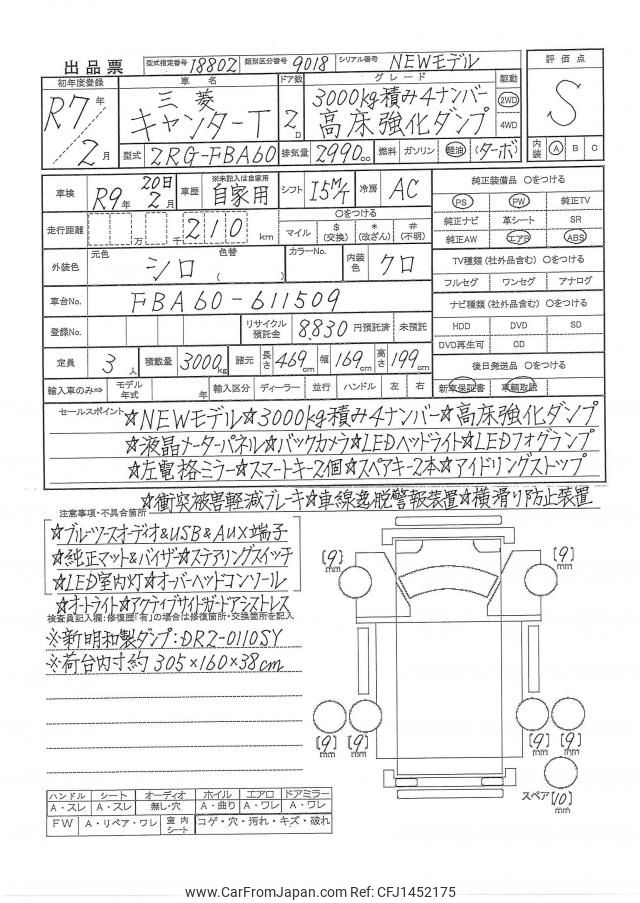 出品票 型式指定番号 18802 類別区分番号 9018 シリアル番号 NEWモデル
初年度登録 車名 ドア数 グレード 駆動 評価点
R7年/2月 三菱 キャンターT 2D 3000kg積み4ナンバー 高床強化ダンプ 2WD 4WD S
型式 2RG-FBA60 排気量 2990cc 燃料 ガソリン 軽油 (ターボ) 内装 A B C
車検 R9年 20日 2月 車歴 ※未記入は自家用 自家用 シフト I5M/T 冷房 AC 純正装備品 ○をつける
PS PW 純正TV
走行距離 万 千 210 km ○をつける マイル $(交換) *(改ざん) #(不明) 純正ナビ 革シート SR
純正AW エアB ABS
外装色 元色 シロ 色替 ( ) カラーNo. 内装色 クロ TV種類(社外品含む) ○をつける
フルセグ ワンセグ アナログ
車台No. FBA60-611509 ナビ種類(社外品含む) ○をつける
登録No. リサイクル預託金 8830 円預託済 未預託 HDD DVD SD
DVD再生可 CD
定員 3人 積載量 3000kg 諸元 長さ 469cm 幅 169cm 高さ 199cm 後日発送品 ○をつける
輸入車のみ⇒ モデル年式 年 輸入区分 ディーラー 並行 ハンドル 左 右 新車保証書 車輌取説
セールスポイント ☆NEWモデル☆3000kg積み4ナンバー☆高床強化ダンプ
☆液晶メーターパネル☆バックカメラ☆LEDヘッドライト☆LEDフォグランプ
☆左電格ミラー☆スマートキー2個☆スペアキー2本☆アイドリングストップ
☆衝突被害軽減ブレーキ☆車線逸脱警報装置☆横滑り防止装置
注意事項・不具合箇所
☆ブルーツースオーディオ&USB&AUX端子
☆純正マット&バイザー☆ステアリングスイッチ
☆LED室内灯☆オーバーヘッドコンソール
☆オートライト☆アクティブサイドガードアシストレス
検査員記入欄:修復歴「有」の場合は修復箇所・交換箇所を記入
※新明和製ダンプ:DR2-0110SY
※荷台内寸約305×160×38cm
(9)mm (9)mm
(9)mm (9)mm (9)mm (9)mm
スペア (10)mm
ハンドル シート オーディオ ホイル エアロ ドアミラー
A・スレ A・スレ 無し・穴 A・曲り A・ワレ A・ワレ
FW A・リペア・ワレ 室内シート コゲ・穴・汚れ・キズ・破れ
www.CarFromJapan.com Ref: CFJ1452175